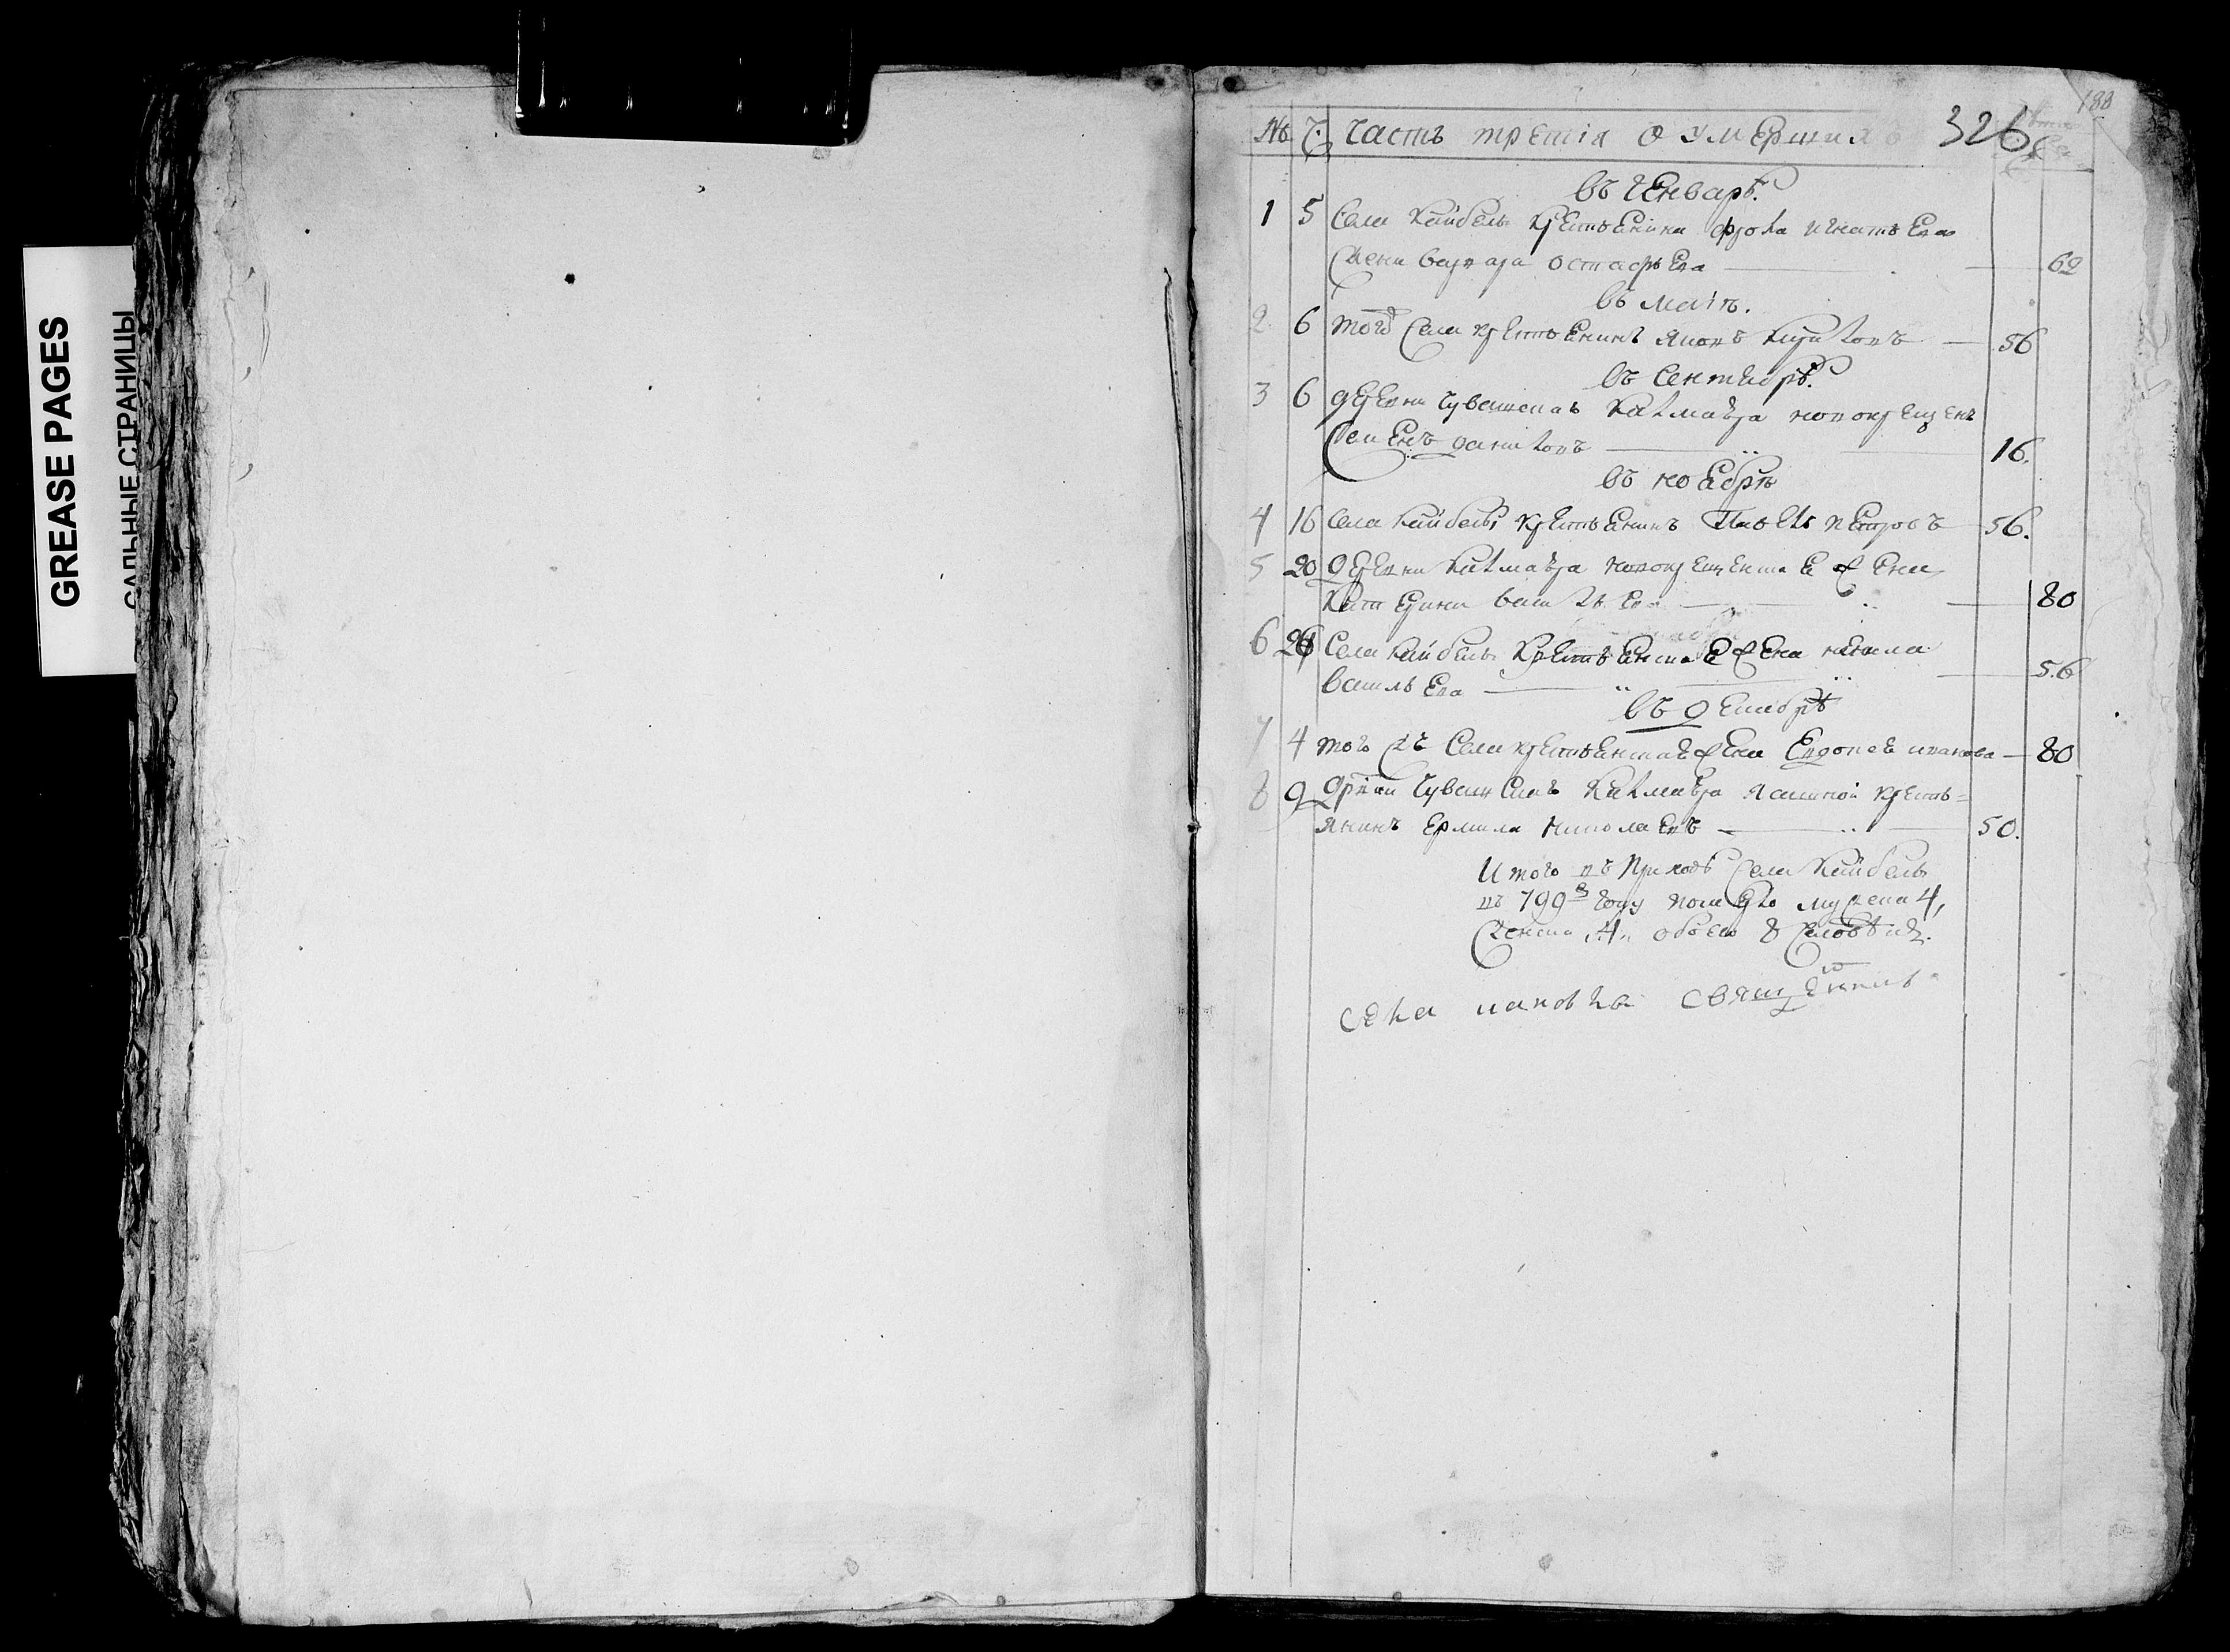 GREASE PAGES
САЛЬНЫЕ СТРАНИЦЫ
188
326
№ Ч. Часть третїя о умершихъ
въ Генварѣ.
1 5 Села Кайбелъ крестьянина фрола игнатьева
жена варвара остафьева 62
въ маiѣ.
2 6 того села крестьянинъ яковъ 56
въ сентябрѣ.
3 6 деревни чувашскаго Калмаюра новокрещенъ
семенъ даниловъ 16.
въ ноябрѣ
4 16 села кайбелъ крестьянинъ Павелъ петровъ 56.
5 20 деревни Калмаюра новокрещенская жена
Катерина васильева 80
6 24 села кайбелъ крестьянская жена
васильева 56
въ декабрѣ
7 4 того жъ села крестьянская жена Евдокея иванова 80
8 9 дрвни чувашскаго Калмаюра ясашной кресть=
янинъ ермила николаевъ 50.
Итого въ приходѣ села Кайбелъ
въ 799м году померло мужска 4,
женска 4, обоего 8 человѣкъ.
села ивановка священникъ